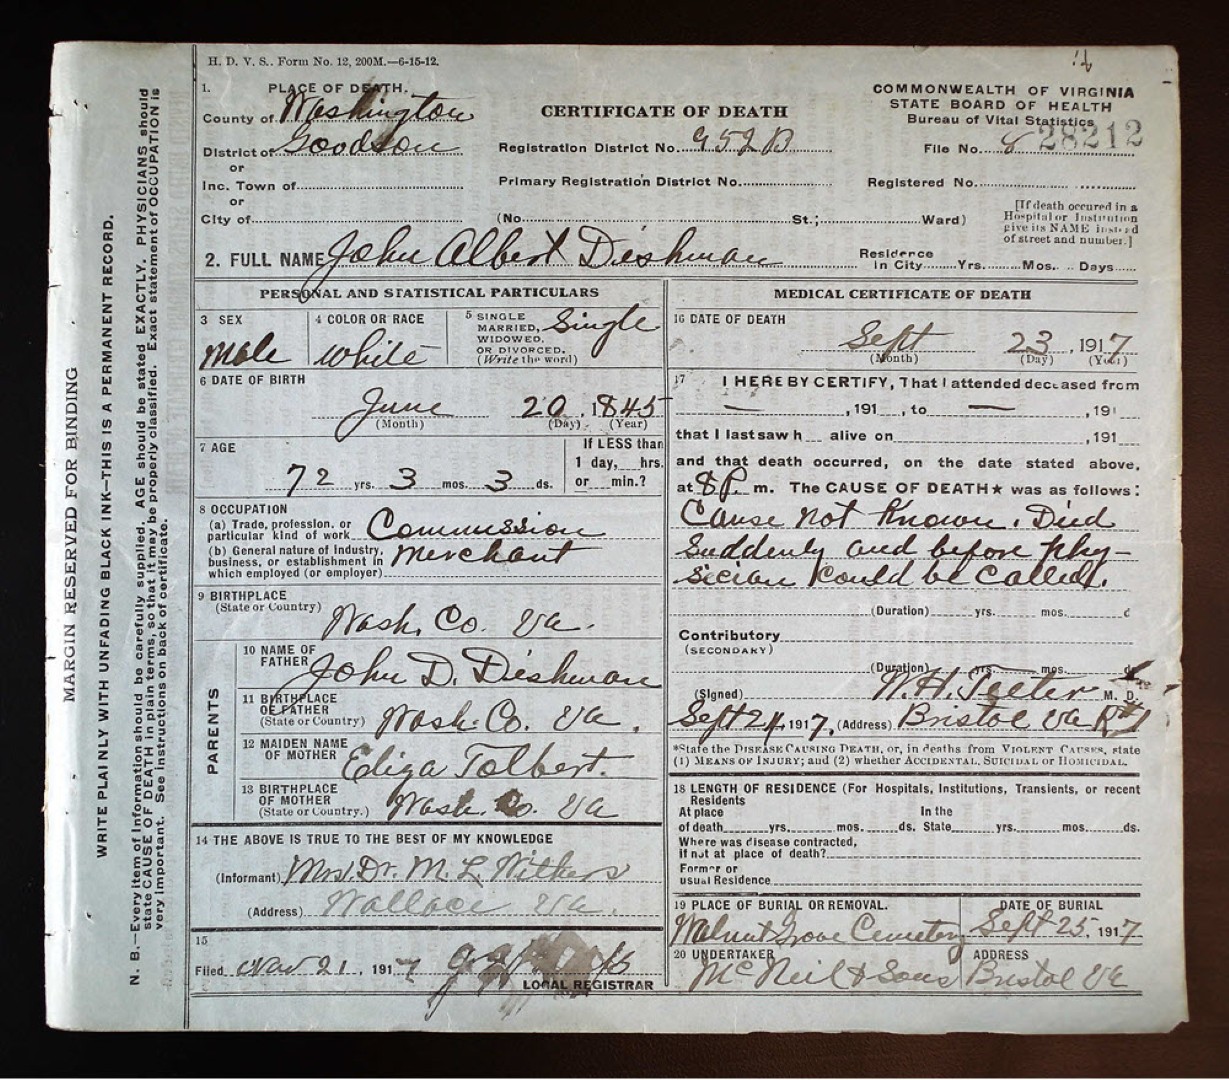 H. D. V. S.. Form No. 12, 200M.—6-15-12.
1. PLACE OF DEATH.
County of Washington
District of Goodson
or
Inc. Town of
or
City of
CERTIFICATE OF DEATH
Registration District No. 952B
Primary Registration District No.
(No. St.; Ward)
COMMONWEALTH OF VIRGINIA
STATE BOARD OF HEALTH
Bureau of Vital Statistics
File No. 8 28212
Registered No.
[If death occured in a
Hospital or Institution
give its NAME instead
of street and number.]
2. FULL NAME John Albert Dishman
Residence
In City Yrs. Mos. Days
PERSONAL AND STATISTICAL PARTICULARS
3 SEX
Male
4 COLOR OR RACE
White
5 SINGLE
MARRIED,
WIDOWED.
OR DIVORCED.
(Write the word)
Single
6 DATE OF BIRTH
June 20, 1845
(Month) (Day) (Year)
7 AGE
72 yrs. 3 mos. 3 ds.
If LESS than
1 day, hrs.
or min.?
8 OCCUPATION
(a) Trade, profession. or
particular kind of work Commission
(b) General nature of Industry,
business, or establishment in
which employed (or employer) Merchant
9 BIRTHPLACE
(State or Country)
Wash. Co. Va.
PARENTS
10 NAME OF
FATHER
John D. Dishman
11 BIRTHPLACE
OF FATHER
(State or Country)
Wash. Co. Va.
12 MAIDEN NAME
OF MOTHER
Eliza Tolbert.
13 BIRTHPLACE
OF MOTHER
(State or Country.)
Wash. Co. Va
14 THE ABOVE IS TRUE TO THE BEST OF MY KNOWLEDGE
(Informant) Mrs. Dr. M. L. Withers
(Address) Wallace Va.
15
Filed Nov 21, 1917
LOCAL REGISTRAR
MEDICAL CERTIFICATE OF DEATH
16 DATE OF DEATH
Sept 23, 1917
(Month) (Day) (Year)
17 I HEREBY CERTIFY, That I attended deceased from
— , 191 , to — , 191
that I last saw h alive on , 191
and that death occurred, on the date stated above,
at 8P. m. The CAUSE OF DEATH★ was as follows:
Cause not Known. Died
Suddenly and before phy-
sician could be called.
(Duration) yrs. mos. d
Contributory
(SECONDARY)
(Duration) yrs. mos. ds
(Signed) W. H. Teeter M. D.
Sept 24, 1917, (Address) Bristol Va R#1
*State the DISEASE CAUSING DEATH, or, in deaths from VIOLENT CAUSES, state
(1) MEANS OF INJURY; and (2) whether ACCIDENTAL, SUICIDAL or HOMICIDAL.
18 LENGTH OF RESIDENCE (For Hospitals, Institutions, Transients, or recent
Residents
At place In the
of death yrs. mos. ds. State yrs. mos. ds.
Where was disease contracted,
If not at place of death?
Former or
usual Residence
19 PLACE OF BURIAL OR REMOVAL.
Walnut Grove Cemetery
DATE OF BURIAL
Sept 25, 1917
20 UNDERTAKER
McNeil & Sons
ADDRESS
Bristol Va
MARGIN RESERVED FOR BINDING
WRITE PLAINLY WITH UNFADING BLACK INK—THIS IS A PERMANENT RECORD.
N. B.—Every item of Information should be carefully supplied. AGE should be stated EXACTLY. PHYSICIANS should
state CAUSE OF DEATH in plain terms, so that it may be properly classified. Exact statement of OCCUPATION is
very important. See instructions on back of certificate.